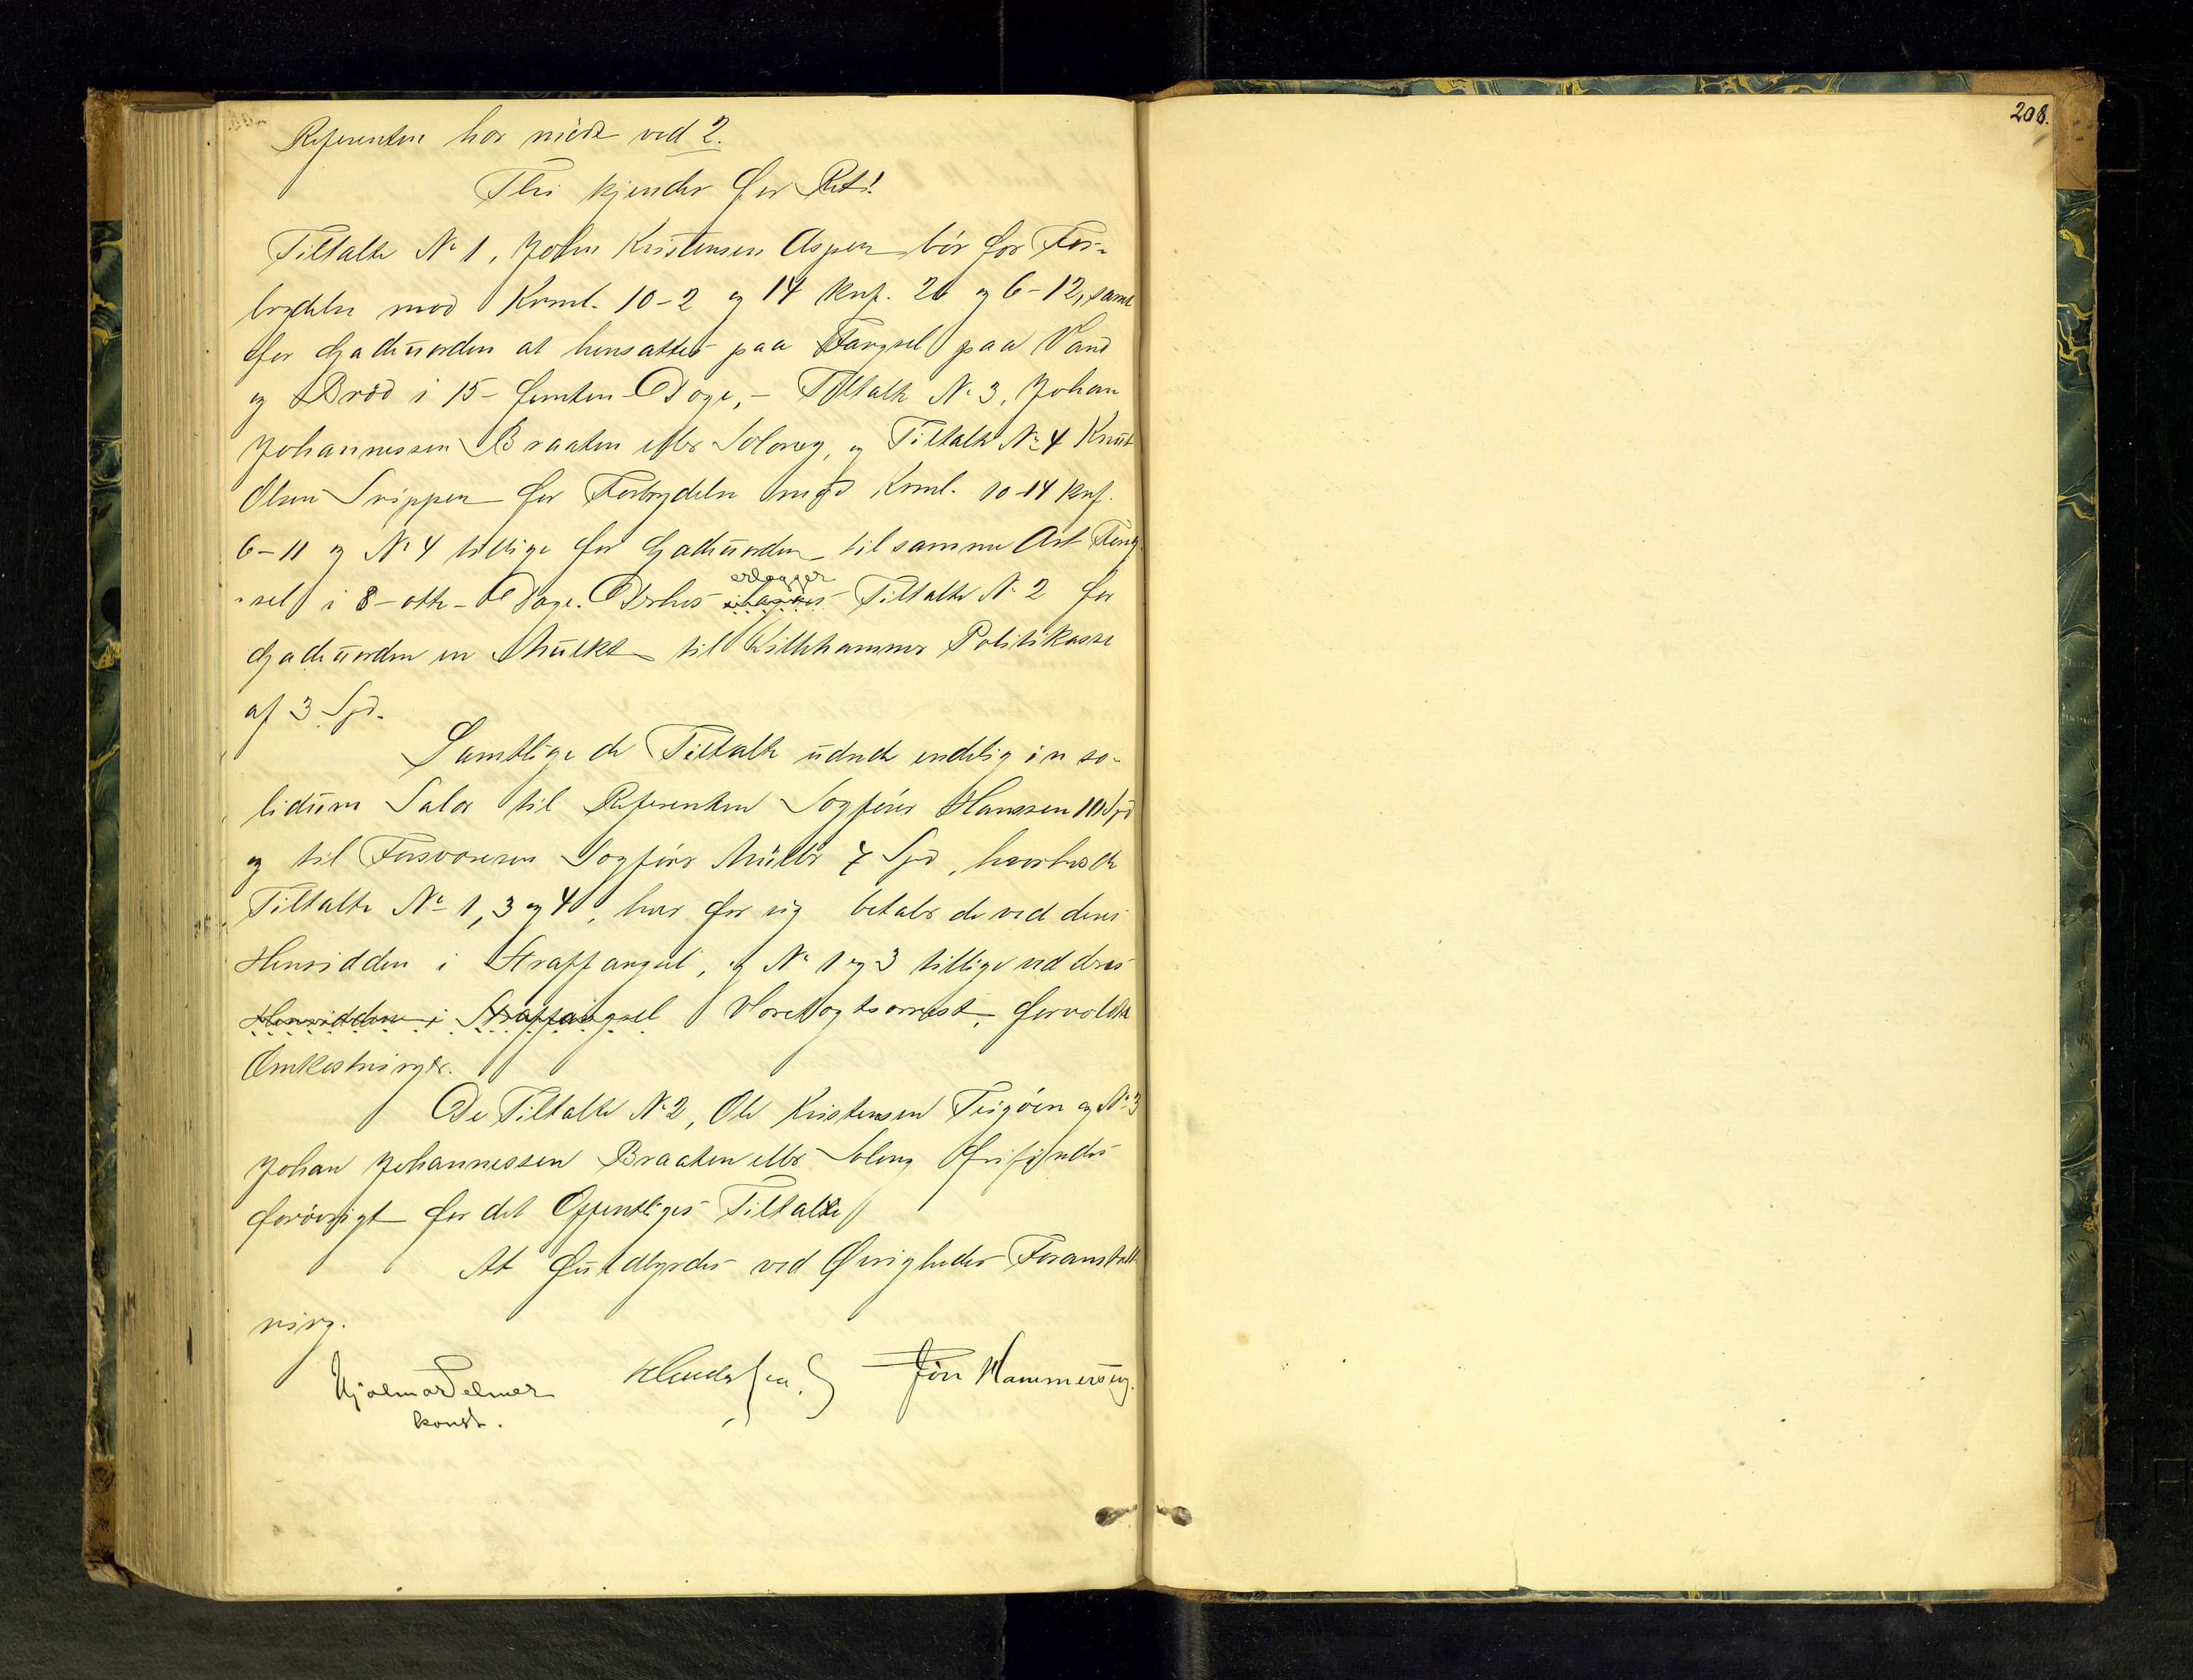 Referenten har mödt ved 2.
Thi kjendes for Ret!
Tiltalte No 1, John Kristensen Aspen bör for For-
brydelse mod Krml. 10-2 og 14 Knf. 26 og 6-12, samt
for Gadeuorden at hensættes paa Fængsel paa Vand
og Bröd i 15 - femten - Dage, - Tiltalte No 3, Johan
Johannessen Braaten eller Solberg, og Tiltalte No 4 Knut
Olsen Svippen for Forbrydelse mod Krml. 10-14 Knf.
6-11 og No 4 tillige for Gadeuorden til samme Art Fæng-
sel i 8 - otte - Dage. Derhos ilægges erlægger Tiltalte No 2 for
Gadeuorden en Mulkt til Lillehammer Politikasse
af 3 Spd.
Samtlige de Tiltalte udrede endelig in so-
lidum Salær til Referenten Sagförer Hanssen 10 Spd
og til Forsvareren Sagförer Müller 7 Spd, hvorhos de
Tiltalte No 1, 3 og 4, hver for sig betaler de ved deres
Hensidden i Straffængsel, og No 1 og 3 tillige ved deres
Hensidden i Straffængsel Varetægtsarrest, forvoldte
Omkostninger.
De Tiltalte No 2, Ole Kristensen og No 3
Johan Johannessen Braaten eller Solberg frifindes
forövrigt for det Offentliges Tiltale
At fuldbyrdes ved Øvrighedens Foranstalt-
ning.
Hjalmar Selmer
konst.
Jörn Hammerseng.
208.